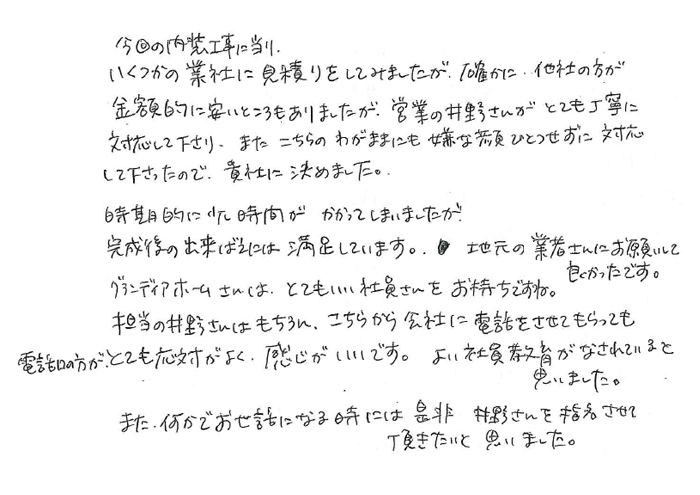 今回の内装工事に当り、
いくつかの業社に見積りをしてみましたが、確かに、他社の方が
金額的に安いところもありましたが、営業の井野さんがとても丁寧に
対応して下さり、またこちらのわがままにも嫌な顔ひとつせずに対応
して下さったので、貴社に決めました。
時期的に少し時間がかかってしまいましたが、
完成後の出来ばえには満足しています。地元の業者さんにお願いして
良くかったです。
グランディアホームさんは、とてもいい社員さんをお持ちですね。
担当の井野さんはもちろん、こちらから会社に電話をさせてもらっても
電話口の方が、とても応対がよく、感じがいいです。よい社員教育がなされていると
思いました。
また、何かでお世話になる時には是非井野さんを指名させて
頂きたいと思いました。